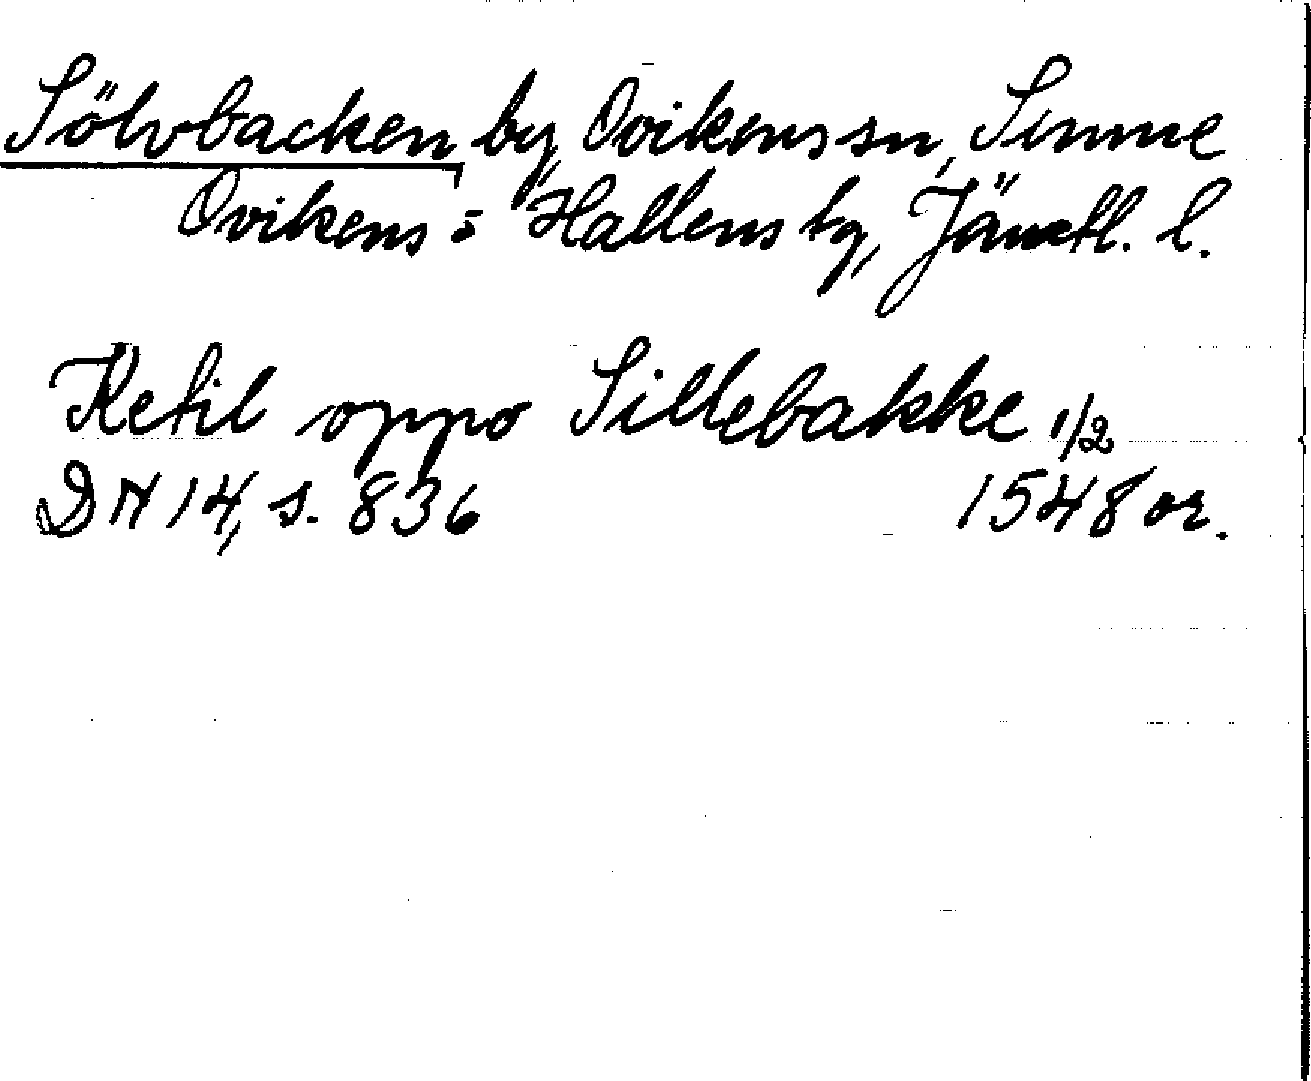 Sölvbacken, by, Ovikens sn, Sunne
Ovikens o Hallens tg, Jämtl. l.
Ketil oppo Sillebakke 1/2
DN 14, s. 836 1548 or.